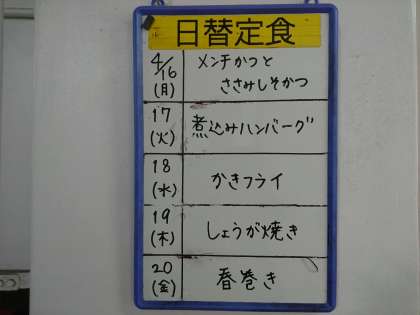 日替定食
4/16
(月)
メンチかつと
ささみしそかつ
17
(火)
煮込みハンバーグ
18
(水)
かきフライ
19
(木)
しょうが焼き
20
(金)
春巻き